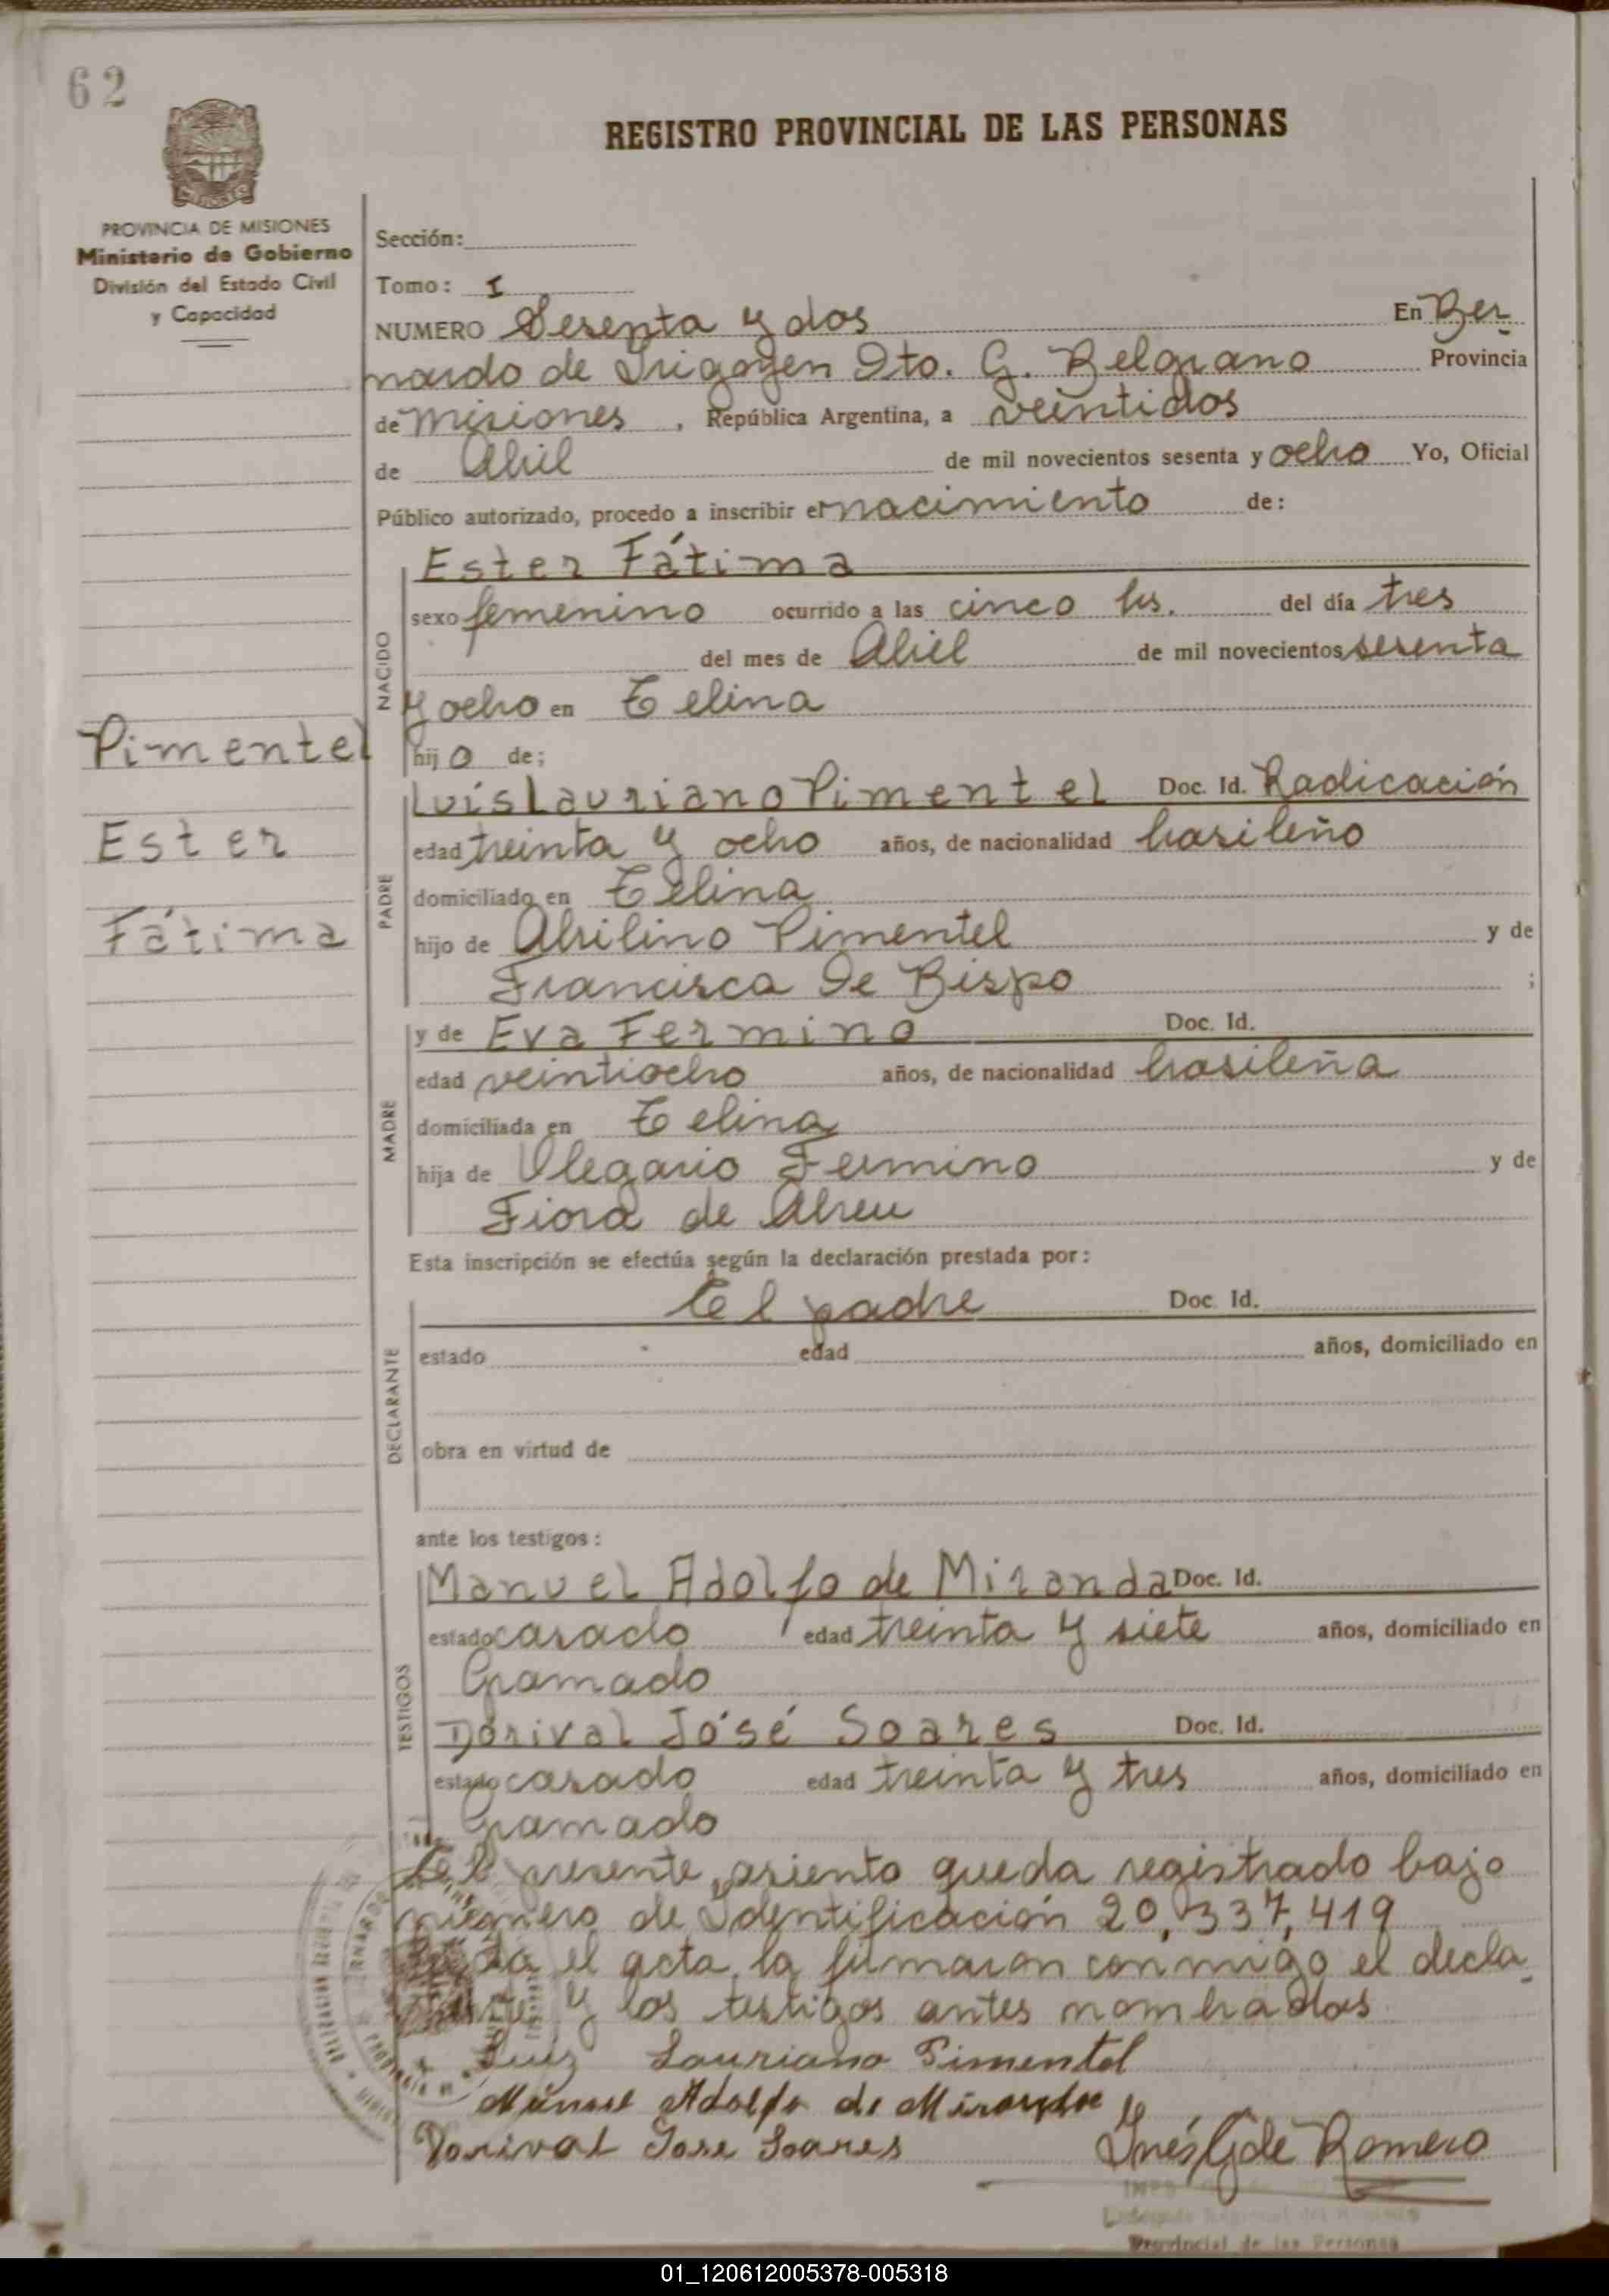 62
REGISTRO PROVINCIAL DE LAS PERSONAS
PROVINCIA DE MISIONES
Ministerio de Gobierno
División del Estado Civil
y Capacidad
Sección:
Tomo: I
NUMERO Sesenta y dos En Ber
nardo de Irigoyen Dto. G. Belgrano Provincia
de Misiones, República Argentina, a veintidos
de Abril de mil novecientos sesenta y ocho Yo, Oficial
Público autorizado, procedo a inscribir el nacimiento de:
Ester Fátima
NACIDO
sexo femenino ocurrido a las cinco hs. del día tres
del mes de Abril de mil novecientos sesenta
y ocho en Celina
Pimentel
Ester
Fátima
hijo de;
Luis Lauriano Pimentel Doc. Id. Radicación
PADRE
edad treinta y ocho años, de nacionalidad brasileño
domiciliado en Celina
hijo de Abrilino Pimentel y de
Francisca De Bispo ;
y de Eva Fermino Doc. Id.
MADRE
edad veintiocho años, de nacionalidad brasileña
domiciliada en Celina
hija de Olegario Fermino y de
Fiora de Abreu
Esta inscripción se efectúa según la declaración prestada por:
El padre Doc. Id.
DECLARANTE
estado edad años, domiciliado en
obra en virtud de
ante los testigos:
Manuel Adolfo de Miranda Doc. Id.
TESTIGOS
estado casado edad treinta y siete años, domiciliado en
Gramado
Dorival José Soares Doc. Id.
estado casado edad treinta y tres años, domiciliado en
Gramado
El presente asiento queda registrado bajo
número de Identificación 20,337,419
el acta, la firmaron conmigo el decla
rante y los testigos antes nombrados
Luiz Lauriano Pimentel
Manuel Adolfo de Miranda
Dorival Jose Soares Inés G de Romero
Provincial de las Personas
01_120612005378-005318